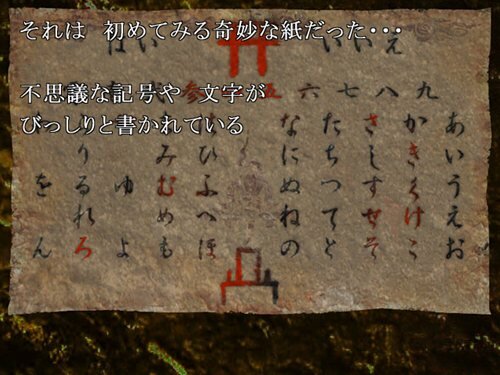 それは　初めてみる奇妙な紙だった・・・
不思議な記号や　文字が
びっしりと書かれている
はい
いいえ
九八七六五
参
あいうえお
かきくけこ
さしすせそ
たちつてと
なにぬねの
ひふへほ
みむめも
ゆよ
りるれろ
をん